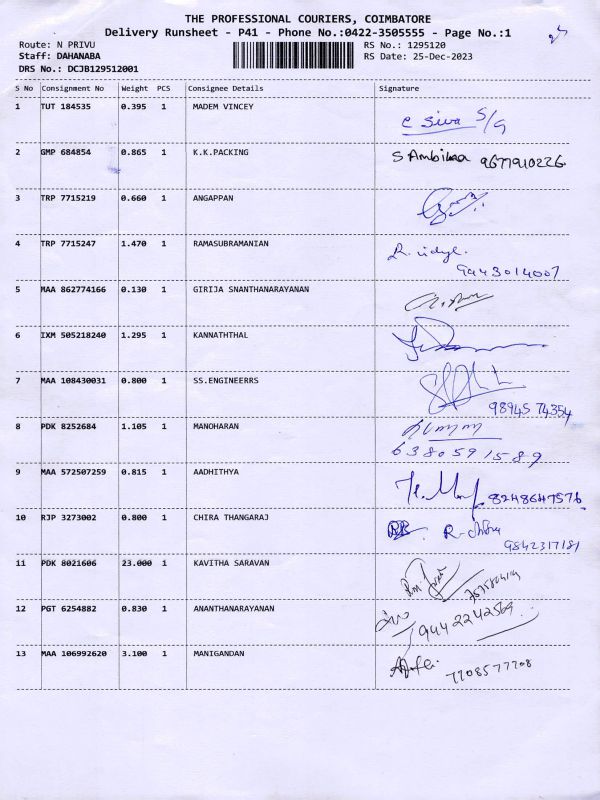 THE PROFESSIONAL COURIERS, COIMBATORE
Delivery Runsheet - P41 - Phone No.:0422-3505555 - Page No.:1
Route: N PRIVU RS No.: 1295120
Staff: DAHANABA RS Date: 25-Dec-2023
DRS No.: DCJB129512001
S No Consignment No Weight PCS Consignee Details Signature
1 TUT 184535 0.395 1 MADEM VINCEY
C Siva S/G
2 GMP 684854 0.865 1 K.K.PACKING S Ambikaa 9677910226
3 TRP 7715219 0.660 1 ANGAPPAN
4 TRP 7715247 1.470 1 RAMASUBRAMANIAN R. Vidya.
9443014007
5 MAA 862774166 0.130 1 GIRIJA SNANTHANARAYANAN
6 IXM 505218240 1.295 1 KANNATHTHAL
7 MAA 108430031 0.800 1 SS.ENGINEERRS
98945 74354
8 PDK 8252684 1.105 1 MANOHARAN
6380591589
9 MAA 572507259 0.815 1 AADHITHYA
8248647576
10 RJP 3273002 0.800 1 CHIRA THANGARAJ R. chitra
9842317181
11 PDK 8021606 23.000 1 KAVITHA SARAVAN
12 PGT 6254882 0.830 1 ANANTHANARAYANAN
9442242569
13 MAA 106992620 3.100 1 MANIGANDAN
7708577708